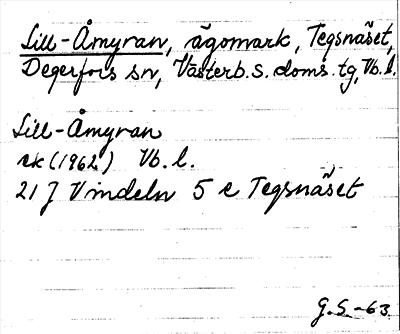 Lill-Åmyran, ägomark, Tegsnäset,
Degerfors sn, Västerb. s. doms. tg, Vb. l.
Lill-Åmyran
ek (1962) Vb. l.
21 J Vindeln 5 c Tegsnäset
G.S.-63